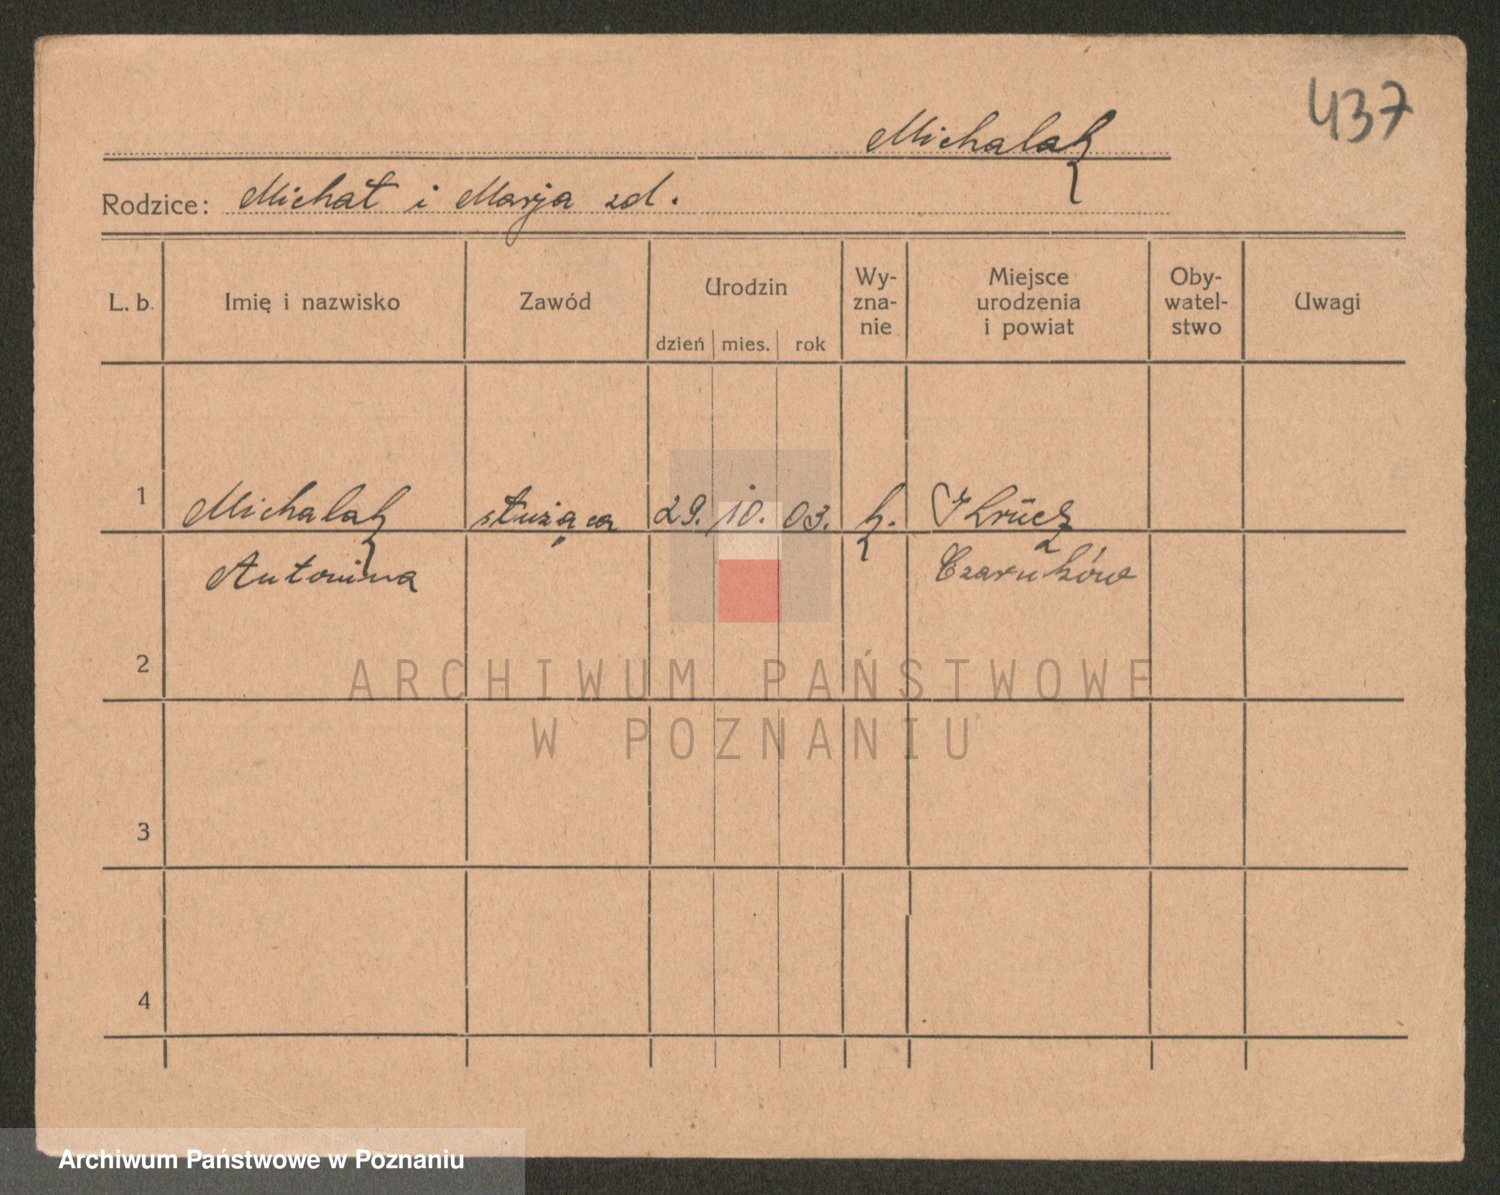 437
Michalak
Rodzice: Michał i Marja zd.
L. b. Imię i nazwisko Zawód Urodzin dzień mies. rok Wy-zna-nie Miejsce urodzenia i powiat Oby-watel-stwo Uwagi
1 Michalak służąca 29. 10. 03. k. Krucz
Antonina Czarnków
2
3
4
ARCHIWUM PAŃSTWOWE
W POZNANIU
Archiwum Państwowe w Poznaniu